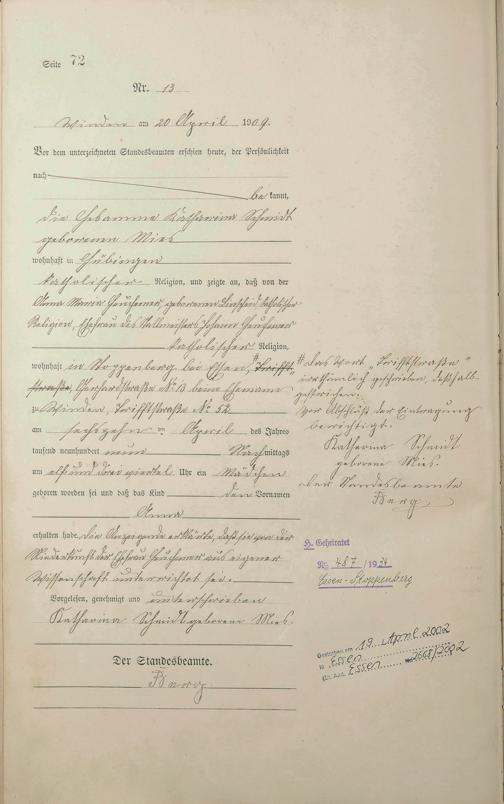 Seite 72
Nr. 13
Winden am 20 April 1909.
Vor dem unterzeichneten Standesbeamten erschien heute, der Persönlichkeit
nach
be kannt,
die Hebamme Katharina Schmidt
geborenen Mies
wohnhaft in Hübingen
katholischer Religion, und zeigte an, daß von der
Anna Maria Heuchemer, geborenen Linscheid katholischer
Religion, Ehefrau des Stallmeisters Johann Heuchemer
katholischer Religion,
wohnhaft in Stoppenberg bei Essen, # Trifft-
straße, Gerhardstraße No 13 beim Ehemann
zu Winden, Trifftstraße No 52
am sechszehn ten April des Jahres
tausend neunhundert neun Nach mittags
um elf und drei viertel Uhr ein Mädchen
geboren worden sei und daß das Kind den Vornamen
Anna
erhalten habe. Die Anzeigende erklärte, daß sie von der
Niederkunft der Ehefrau Heuchemer aus eigener
Wissenschaft unterrichtet sei.
Vorgelesen, genehmigt und unterschrieben
Katharina Schmidt geborene Mies.
Der Standesbeamte.
Berg
# das Wort „Trifftstraße"
irrthümlich geschrieben, deßhalb
gestrichen.
vor Abschluß der Eintragung
berichtigt.
Katharina Schmidt
geborene Mies.
der Standesbeamte
Berg
H. Geheiratet
No 487/1934
Essen-Stoppenberg
Gestorben am 19. April 2002
in Essen
StA Essen Nr. 2661/2002